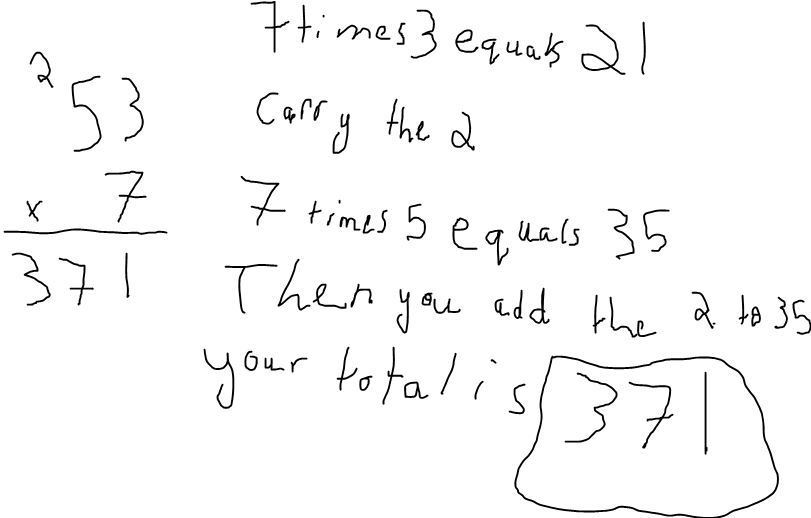 2
53
x 7
371
7 times 3 equals 21
Carry the 2
7 times 5 equals 35
Then you add the 2 to 35
your total is 371